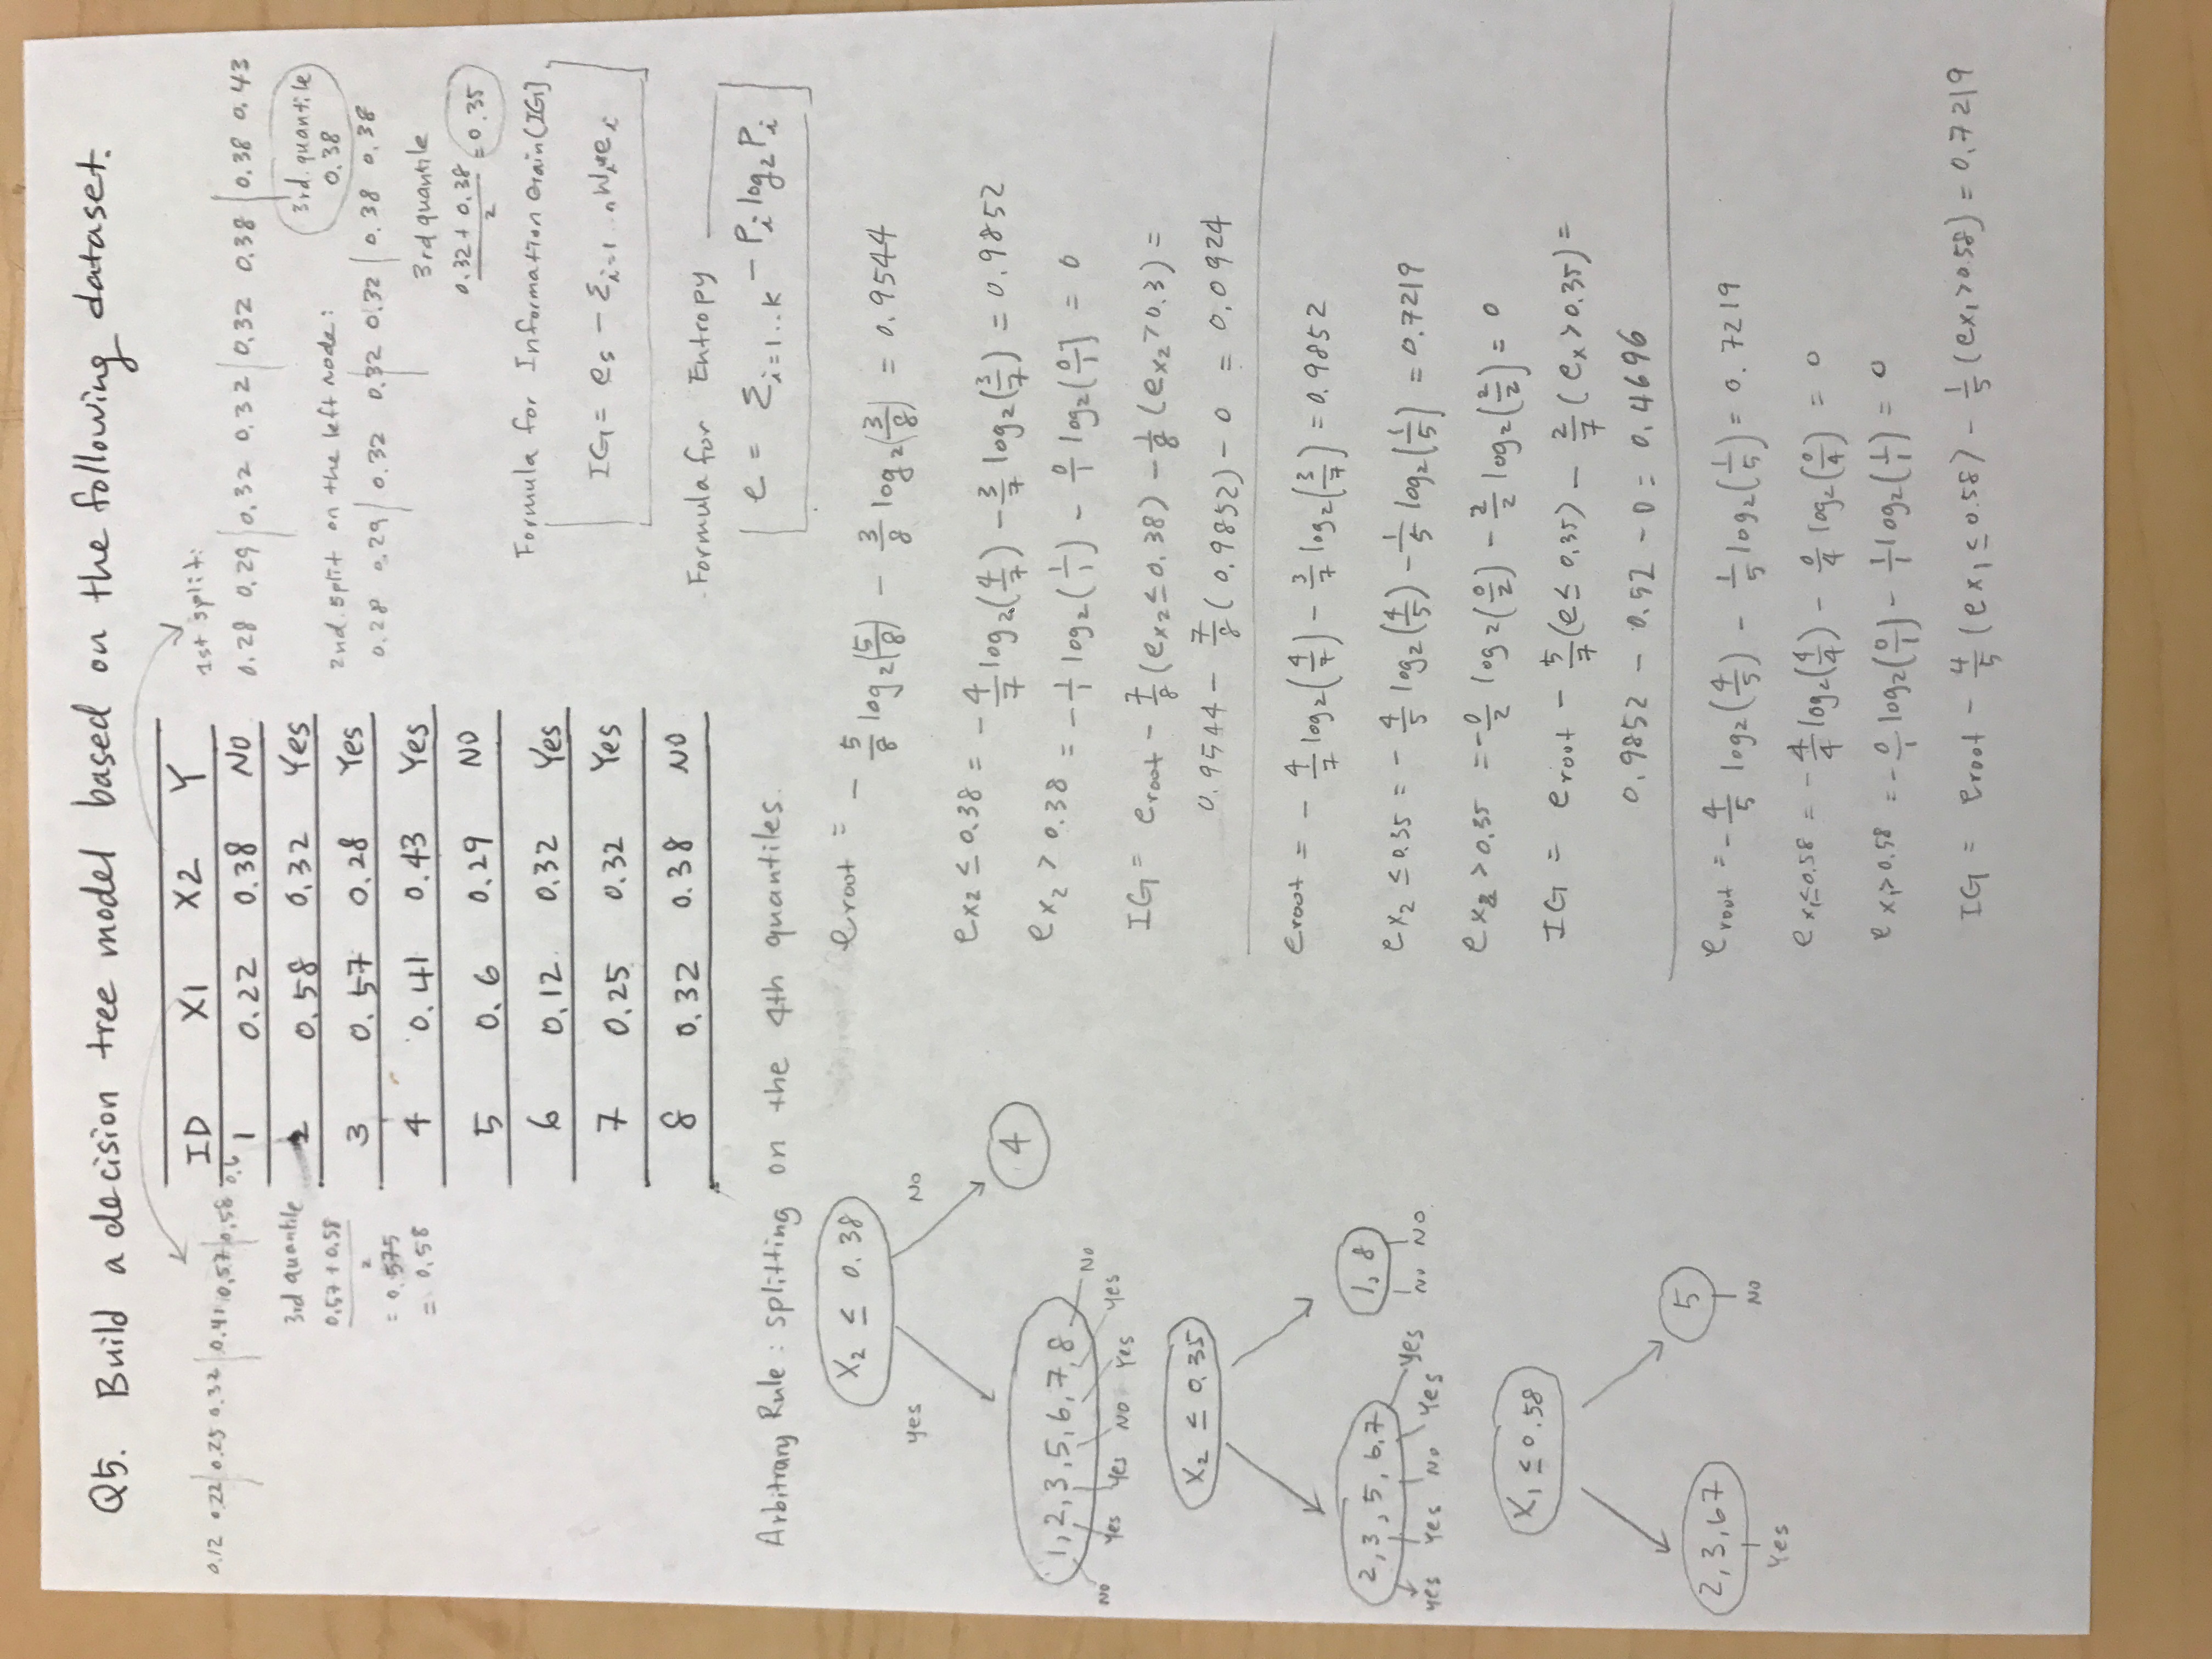 Q5. Build a decision tree model based on the following dataset.
0.12 0.22 | 0.25 0.32 | 0.41 0.57 | 0.58 0.6
3rd quantile
0.57 + 0.58
2
= 0.575
= 0.58
ID X1 X2 Y
1 0.22 0.38 NO
2 0.58 0.32 Yes
3 0.57 0.28 Yes
4 0.41 0.43 Yes
5 0.6 0.29 NO
6 0.12 0.32 Yes
7 0.25 0.32 Yes
8 0.32 0.38 NO
1st split:
0.28 0.29 | 0.32 0.32 | 0.32 0.38 | 0.38 0.43
3rd. quantile
0.38
2nd. split on the left node:
0.28 0.29 | 0.32 0.32 0.32 | 0.38 0.38
3rd quantile
0.32 + 0.38 = 0.35
2
Formula for Information Gain (IG)
IG = es − Σi=1..n Wi*ei
Formula for Entropy
e = Σi=1..K − Pi log2 Pi
Arbitrary Rule: splitting on the 4th quantiles.
X2 ≤ 0.38
yes No
4
1, 2, 3, 5, 6, 7, 8
No Yes Yes NO Yes Yes No
X2 ≤ 0.35
2, 3, 5, 6, 7 1, 8
Yes Yes No Yes Yes No NO
X1 ≤ 0.58
2, 3, 6 7 5
Yes NO
eroot = − 5/8 log2(5/8) − 3/8 log2(3/8) = 0.9544
ex2 ≤ 0.38 = − 4/7 log2(4/7) − 3/7 log2(3/7) = 0.9852
ex2 > 0.38 = − 1/1 log2(1/1) − 0/1 log2(0/1) = 0
IG = eroot − 7/8 (ex2 ≤ 0.38) − 1/8 (ex2 > 0.3) =
0.9544 − 7/8 (0.9852) − 0 = 0.0924
eroot = − 4/7 log2(4/7) − 3/7 log2(3/7) = 0.9852
ex2 ≤ 0.35 = − 4/5 log2(4/5) − 1/5 log2(1/5) = 0.7219
ex2 > 0.35 = − 0/2 log2(0/2) − 2/2 log2(2/2) = 0
IG = eroot − 5/7 (e ≤ 0.35) − 2/7 (ex > 0.35) =
0.9852 − 0.52 − 0 = 0.4696
eroot = − 4/5 log2(4/5) − 1/5 log2(1/5) = 0.7219
ex1 ≤ 0.58 = − 4/4 log2(4/4) − 0/4 log2(0/4) = 0
ex1 > 0.58 = − 0/1 log2(0/1) − 1/1 log2(1/1) = 0
IG = eroot − 4/5 (ex1 ≤ 0.58) − 1/5 (ex1 > 0.58) = 0.7219